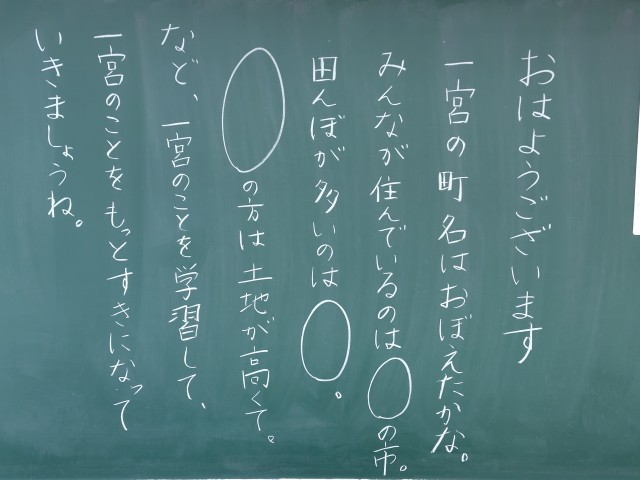 おはようございます
一宮の町名はおぼえたかな。
みんなが住んでいるのは◯の市。
田んぼが多いのは◯。
◯の方は土地が高くて。
など、一宮のことを学習して、
一宮のことをもっとすきになって
いきましょうね。